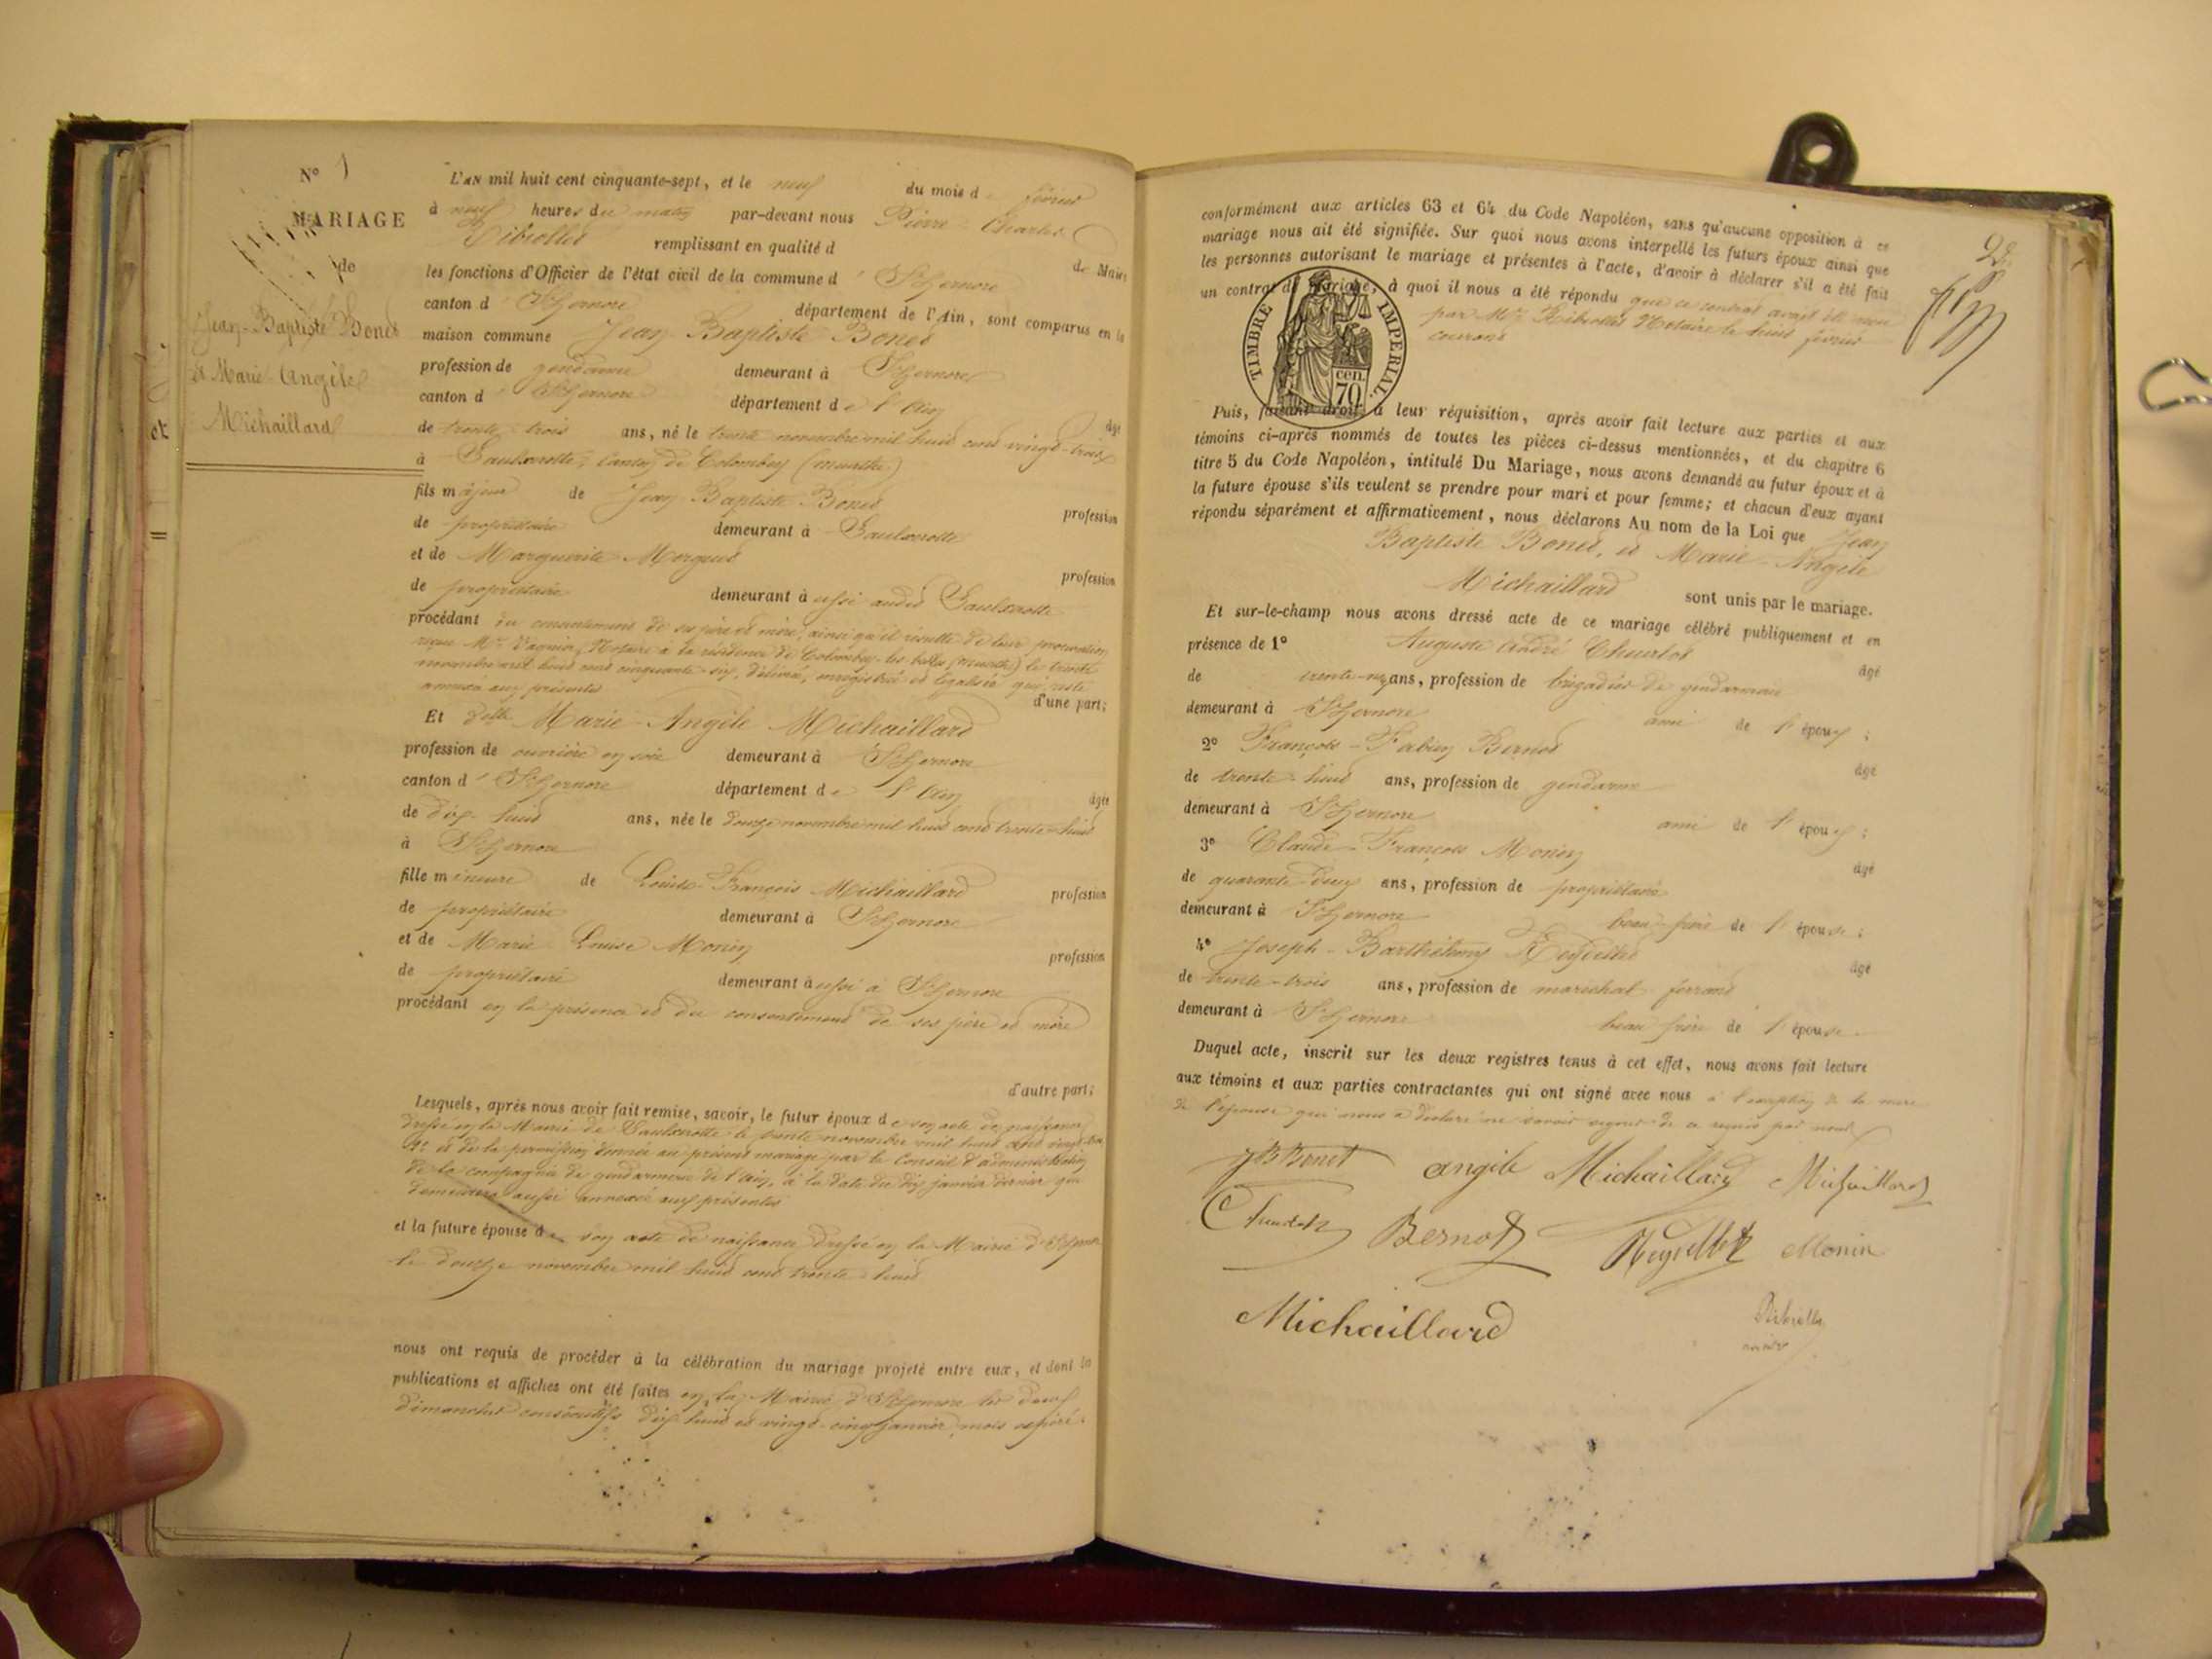 N° 1
MARIAGE
de
Jean-Baptiste Bonet
et Marie Angèle
Michaillard
L'AN mil huit cent cinquante-sept, et le neuf du mois de février
à neuf heures du matin par-devant nous Pierre Charles
remplissant en qualité de Maire
les fonctions d'Officier de l'état civil de la commune d'Oyonnax
canton d'Oyonnax département de l'Ain, sont comparus en la
maison commune Jean Baptiste Bonet
profession de gendarme demeurant à Oyonnax
canton d'Oyonnax département de l'Ain âgé
de trente trois ans, né le trente novembre mil huit cent vingt-trois
à Saulxerotte, canton de Colombey (meurthe)
fils majeur de Jean Baptiste Bonet profession
de propriétaire demeurant à Saulxerotte
et de Marguerite profession
de propriétaire demeurant aussi audit Saulxerotte
procédant du consentement de ses père et mère, ainsi qu'il résulte de leur procuration
reçue Me Notaire à la résidence de Colombey-les-belles (meurthe) le trente
novembre mil huit cent cinquante-six, délivrée, enregistrée et légalisée qui reste
annexée aux présentes d'une part;
Et Delle Marie-Angèle Michaillard
profession de ouvrière en soie demeurant à Oyonnax
canton d'Oyonnax département de l'Ain âgée
de dix-huit ans, née le douze novembre mil huit cent trente-huit
à Oyonnax
fille mineure de Louis-François Michaillard profession
de propriétaire demeurant à Oyonnax
et de Marie Louise Monin profession
de propriétaire demeurant aussi à Oyonnax
procédant en la présence et du consentement de ses père et mère
d'autre part;
Lesquels, après nous avoir fait remise, savoir, le futur époux de son acte de naissance
dressé en la Mairie de Saulxerotte le trente novembre mil huit cent vingt-trois
et de la permission donnée au présent mariage par le Conseil d'administration
de la compagnie de gendarmerie de l'Ain, à la date du dix janvier dernier qui
demeurera aussi annexée aux présentes
et la future épouse de son acte de naissance dressé en la Mairie d'Oyonnax
le douze novembre mil huit cent trente-huit
nous ont requis de procéder à la célébration du mariage projeté entre eux, et dont les
publications et affiches ont été faites en la Mairie d'Oyonnax les deux
dimanches consécutifs dix-huit et vingt-cinq janvier, mois expiré
conformément aux articles 63 et 64 du Code Napoléon, sans qu'aucune opposition à ce
mariage nous ait été signifiée. Sur quoi nous avons interpellé les futurs époux ainsi que
les personnes autorisant le mariage et présentes à l'acte, d'avoir à déclarer s'il a été fait
un contrat de mariage, à quoi il nous a été répondu que ce contrat avait été reçu
par Me Notaire le huit février
courant
TIMBRE IMPERIAL
cen.
70
Puis, faisant droit à leur réquisition, après avoir fait lecture aux parties et aux
témoins ci-après nommés de toutes les pièces ci-dessus mentionnées, et du chapitre 6
titre 5 du Code Napoléon, intitulé Du Mariage, nous avons demandé au futur époux et à
la future épouse s'ils veulent se prendre pour mari et pour femme; et chacun d'eux ayant
répondu séparément et affirmativement, nous déclarons Au nom de la Loi que Jean
Baptiste Bonet, et Marie Angèle
Michaillard sont unis par le mariage.
Et sur-le-champ nous avons dressé acte de ce mariage célébré publiquement et en
présence de 1° Auguste André âgé
de ans, profession de brigadier de gendarmerie
demeurant à Oyonnax ami de l'époux;
2° François-Fabien Bernot âgé
de trente-huit ans, profession de gendarme
demeurant à Oyonnax ami de l'époux;
3° Claude-François Monin âgé
de quarante-deux ans, profession de propriétaire
demeurant à Oyonnax beau-frère de l'épouse;
4° Joseph-Barthélemy âgé
de trente-trois ans, profession de maréchal ferrant
demeurant à Oyonnax beau frère de l'épouse.
Duquel acte, inscrit sur les deux registres tenus à cet effet, nous avons fait lecture
aux témoins et aux parties contractantes qui ont signé avec nous à l'exception de la mère
de l'épouse qui nous a déclaré ne savoir signer de ce requis par nous
JB Bonet angèle Michaillard Michaillard
Bernot Monin
Michaillard